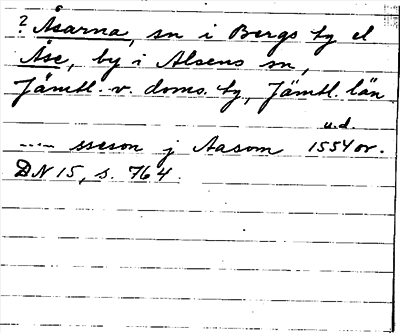 ? Åsarna, sn i Bergs tg el
Åse, by i Alsens sn,
Jämtl. v. doms. tg, Jämtl. län
u.d.
---- sseson j Aasom 1554 or.
DN 15, s. 764.